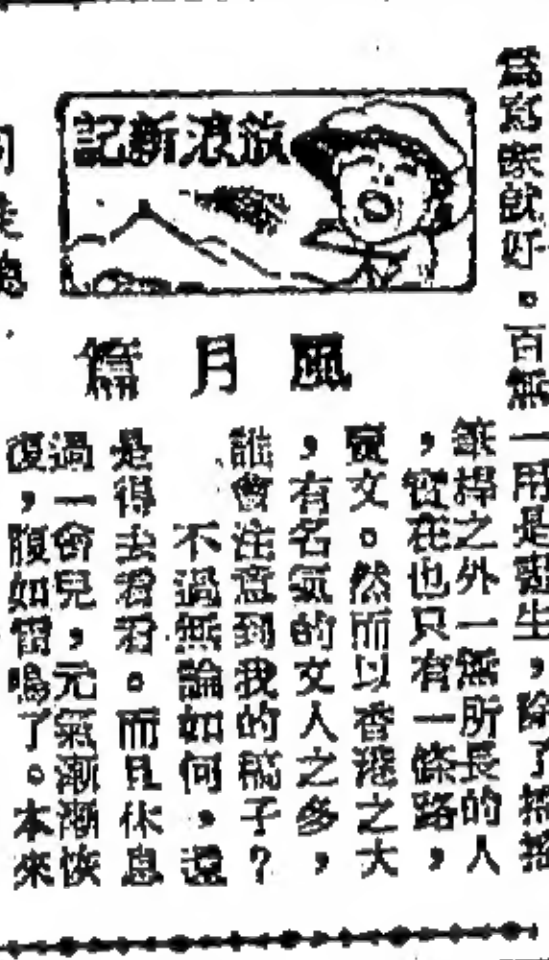 爲寫家就好。百無一用是書生,除了搖搖
筆桿之外一無所長的人
,實在也只有一條路,
賣文。然而以香港之大
,有名氣的文人之多,
誰會注意到我的稿子?
不過無論如何,還
是得去看看。而且休息
過一會兒,元氣漸漸恢
復,腹如雷鳴了。本來
放浪新記
風月篇